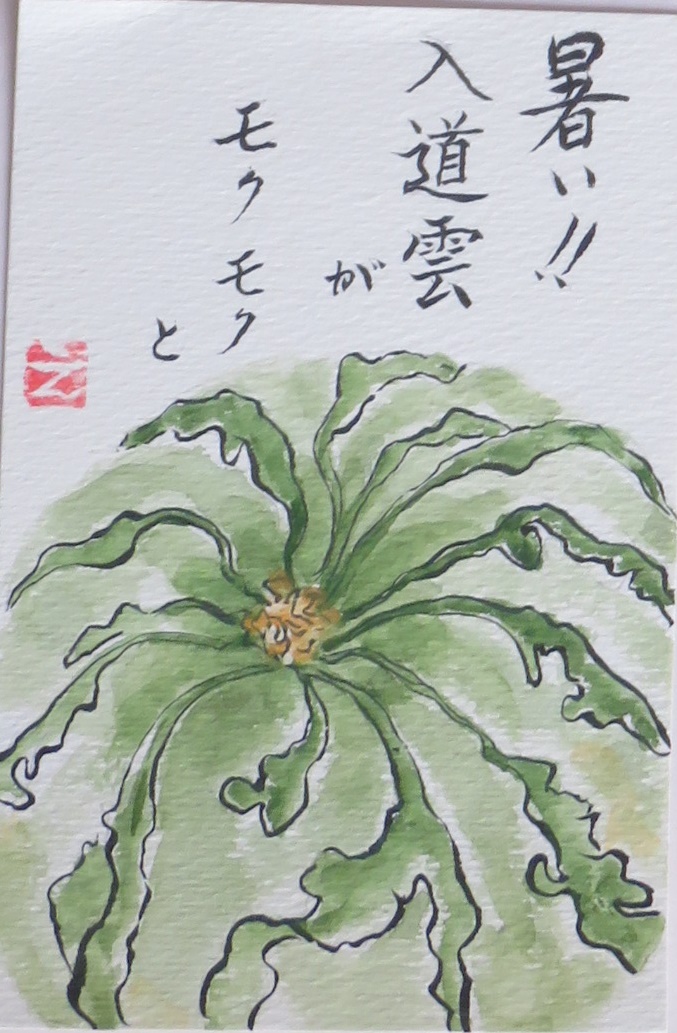 暑い!!
入道雲
が
モクモク
と
N